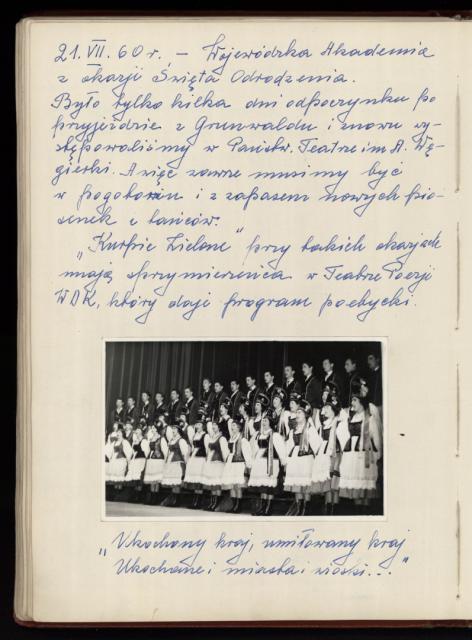 21. VII. 60 r. – Wojewódzka Akademia
z okazji Święta Odrodzenia.
Było tylko kilka dni odpoczynku po
przyjeździe z Grunwaldu i znowu wy-
stępowaliśmy w Państw. Teatrze im A. Wę-
gierki. A więc zawsze musimy być
w pogotowiu i z zapasem nowych pio-
senek i tańców.
„Kurpie Zielone" przy takich okazjach
mają sprzymierzeńca w Teatrze Poezji
WDK, który daje program poetycki.
„Ukochany kraj, umiłowany kraj
Ukochane i miasta i wioski..."